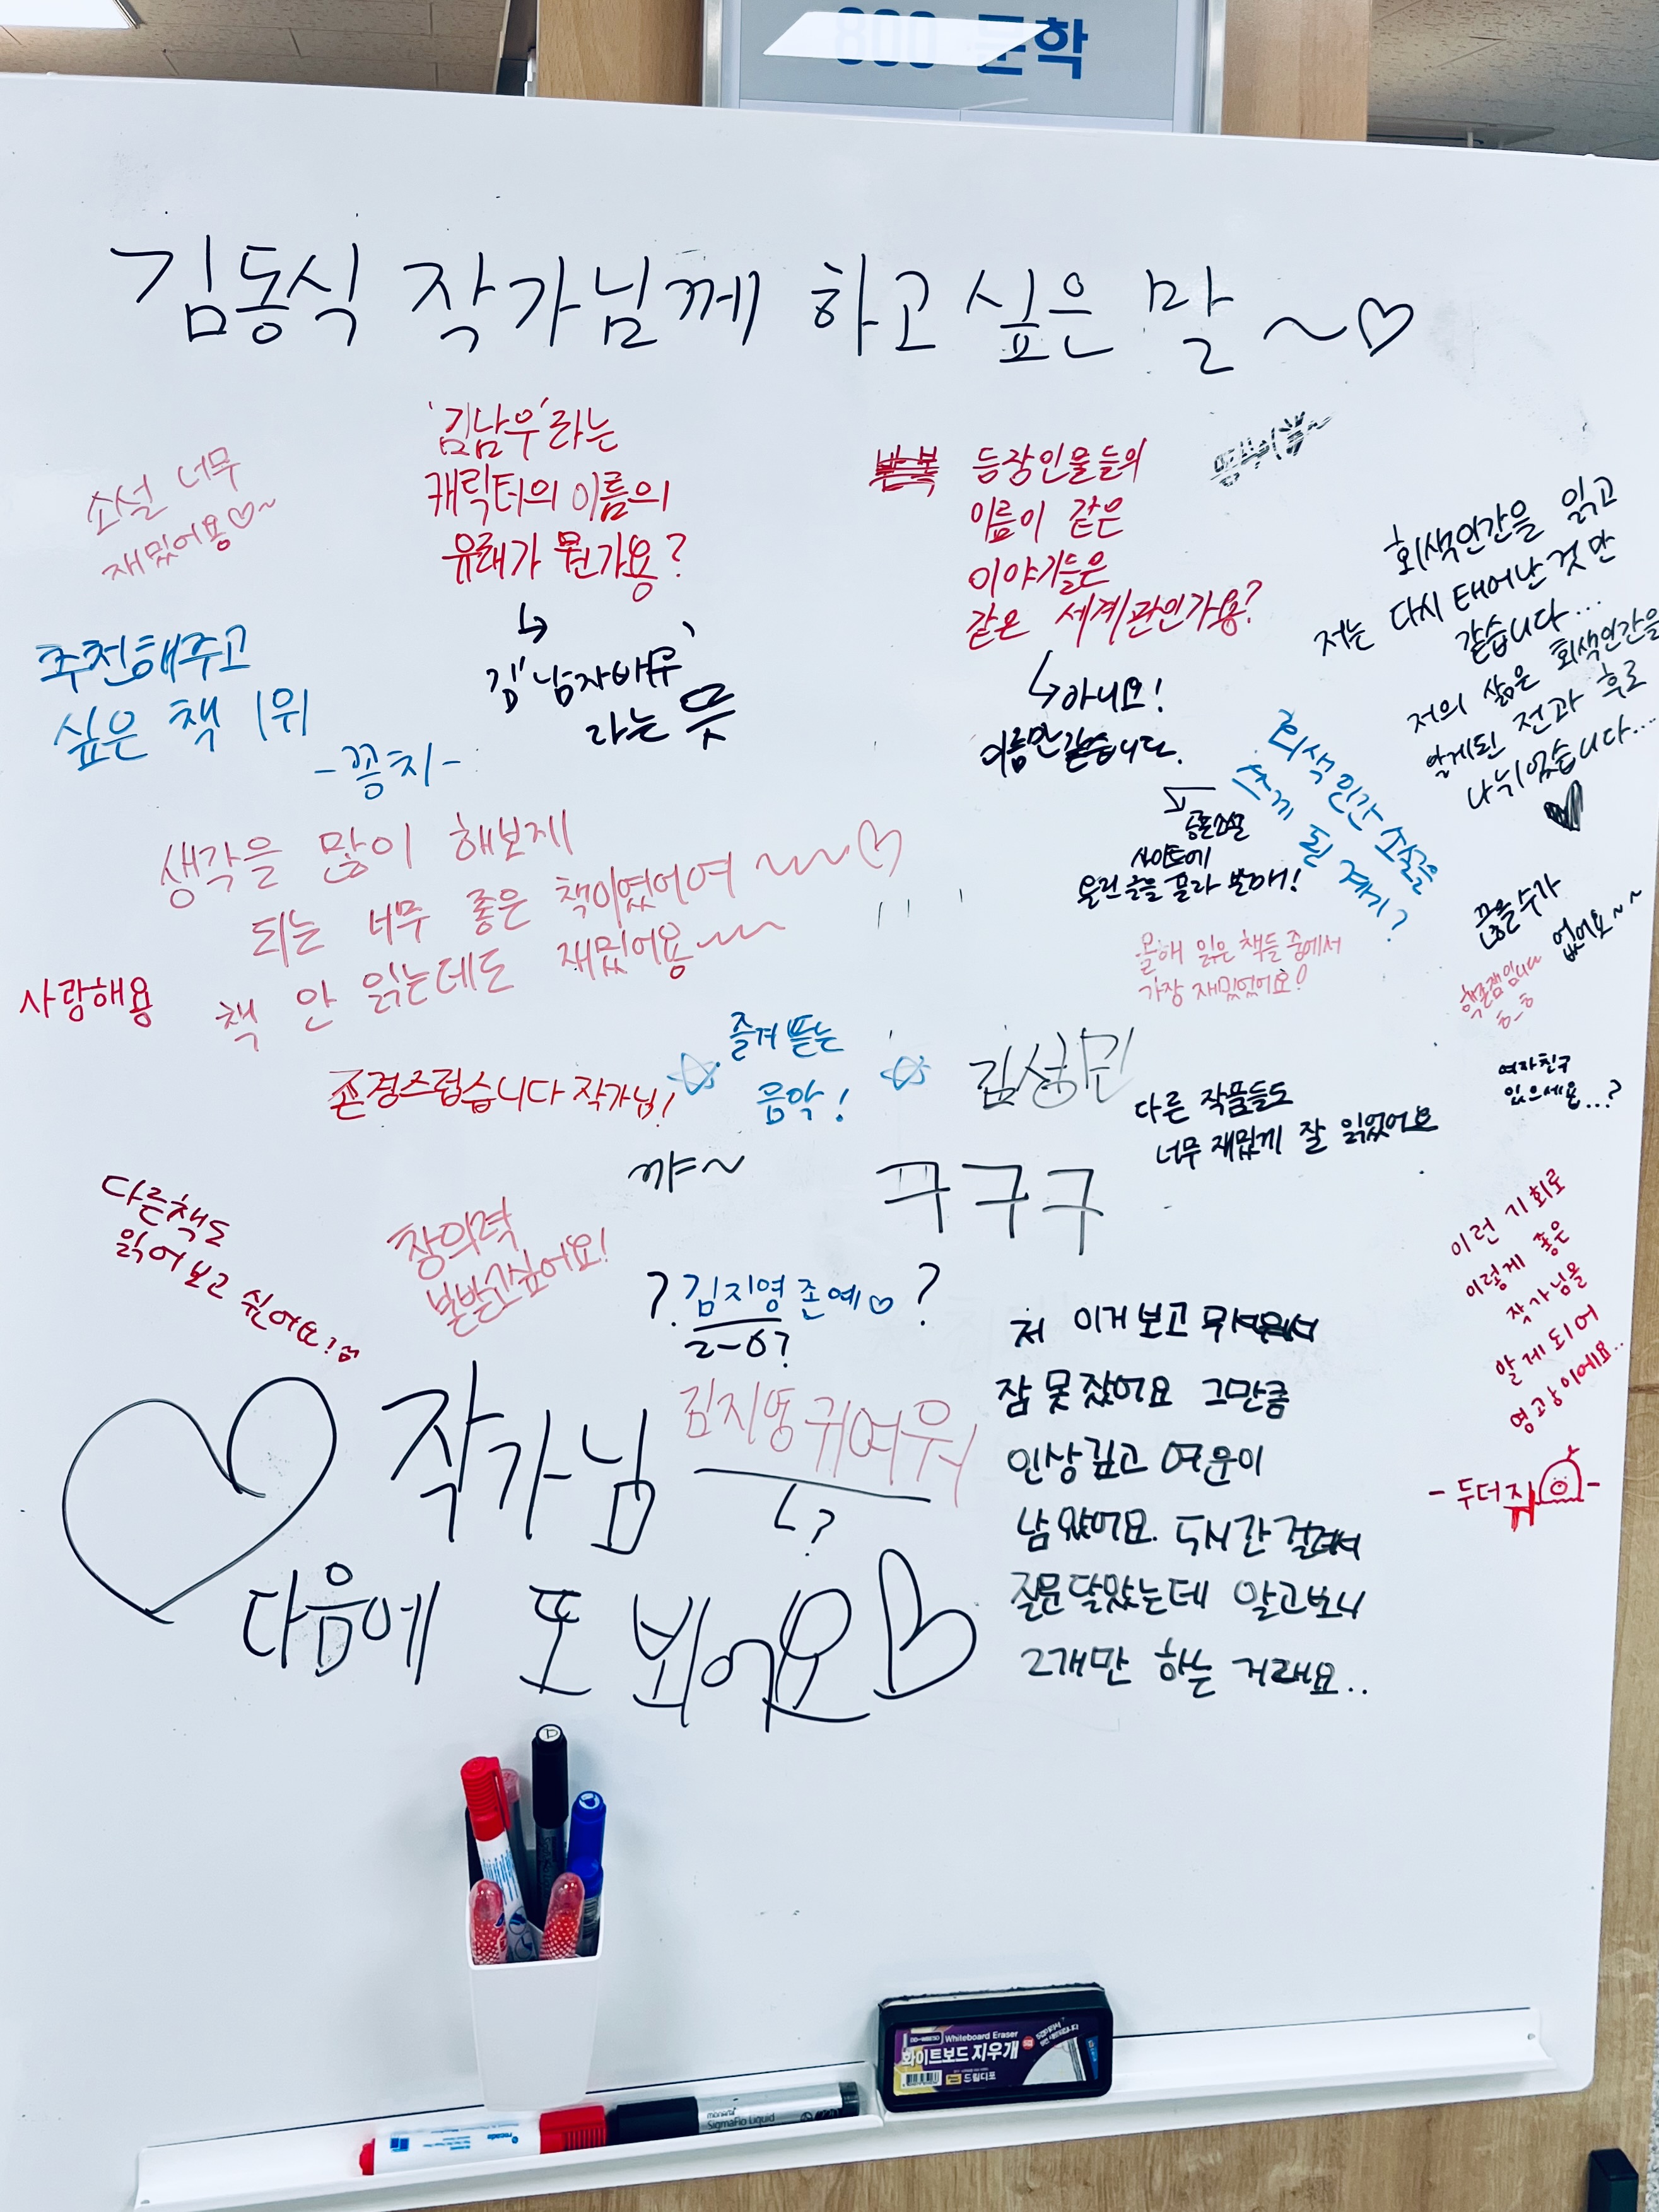 800 문학
김동식 작가님께 하고싶은 말 ~♡
소설 너무
재밌어용♡~
'김남우'라는
캐릭터의 이름의
유래가 뭔가용?
↳
김'남자배우'
라는 뜻
등장인물들의
이름이 같은
이야기들은
같은 세계관인가용?
↳아니요!
이름만 같습니다.
회색인간을 읽고
저는 다시 태어난 것만
같습니다...
저의 삶은 회색인간을
알게된 전과 후로
나뉘었습니다...
♥
추천해주고
싶은 책 1위
-꽁치-
회색인간 소설을
쓰게 된 계기?
사이트에
올린 글을 골라 발매!
생각을 많이 해보제
되는 너무 좋은 책이였어여 ~~~♡
책 안 읽는데도 재밌어용~~~
사랑해용
끊을수가
없어요~~
올해 읽은 책들 중에서
가장 재밌었어요!
핵존잼입니다
ㅎ_ㅎ
존경스럽습니다 작가님!
☆즐겨 듣는 ☆
음악!
김성민
다른 작품들도
너무 재밌게 잘 읽었어요
여자친구
있으세요...?
꺄~
구구구
다른책도
읽어보고 싶어요!
창의력
본받고싶어요!
? 김지영 존예♡ ?
2-6?
이런 기회로
이렇게 좋은
작가님을
알게되어
영광이에요..
-두더지-
김지영 귀여워
↳?
저 이거 보고 무서워서
잠 못 잤어요 그만큼
인상깊고 여운이
남았어요. 두시간 걸려서
질문 달았는데 알고보니
2개만 하는 거래요..
작가님
다음에 또 봬어요♡
Whiteboard Eraser
화이트보드 지우개
드림디포
monami
SigmaFlo Liquid